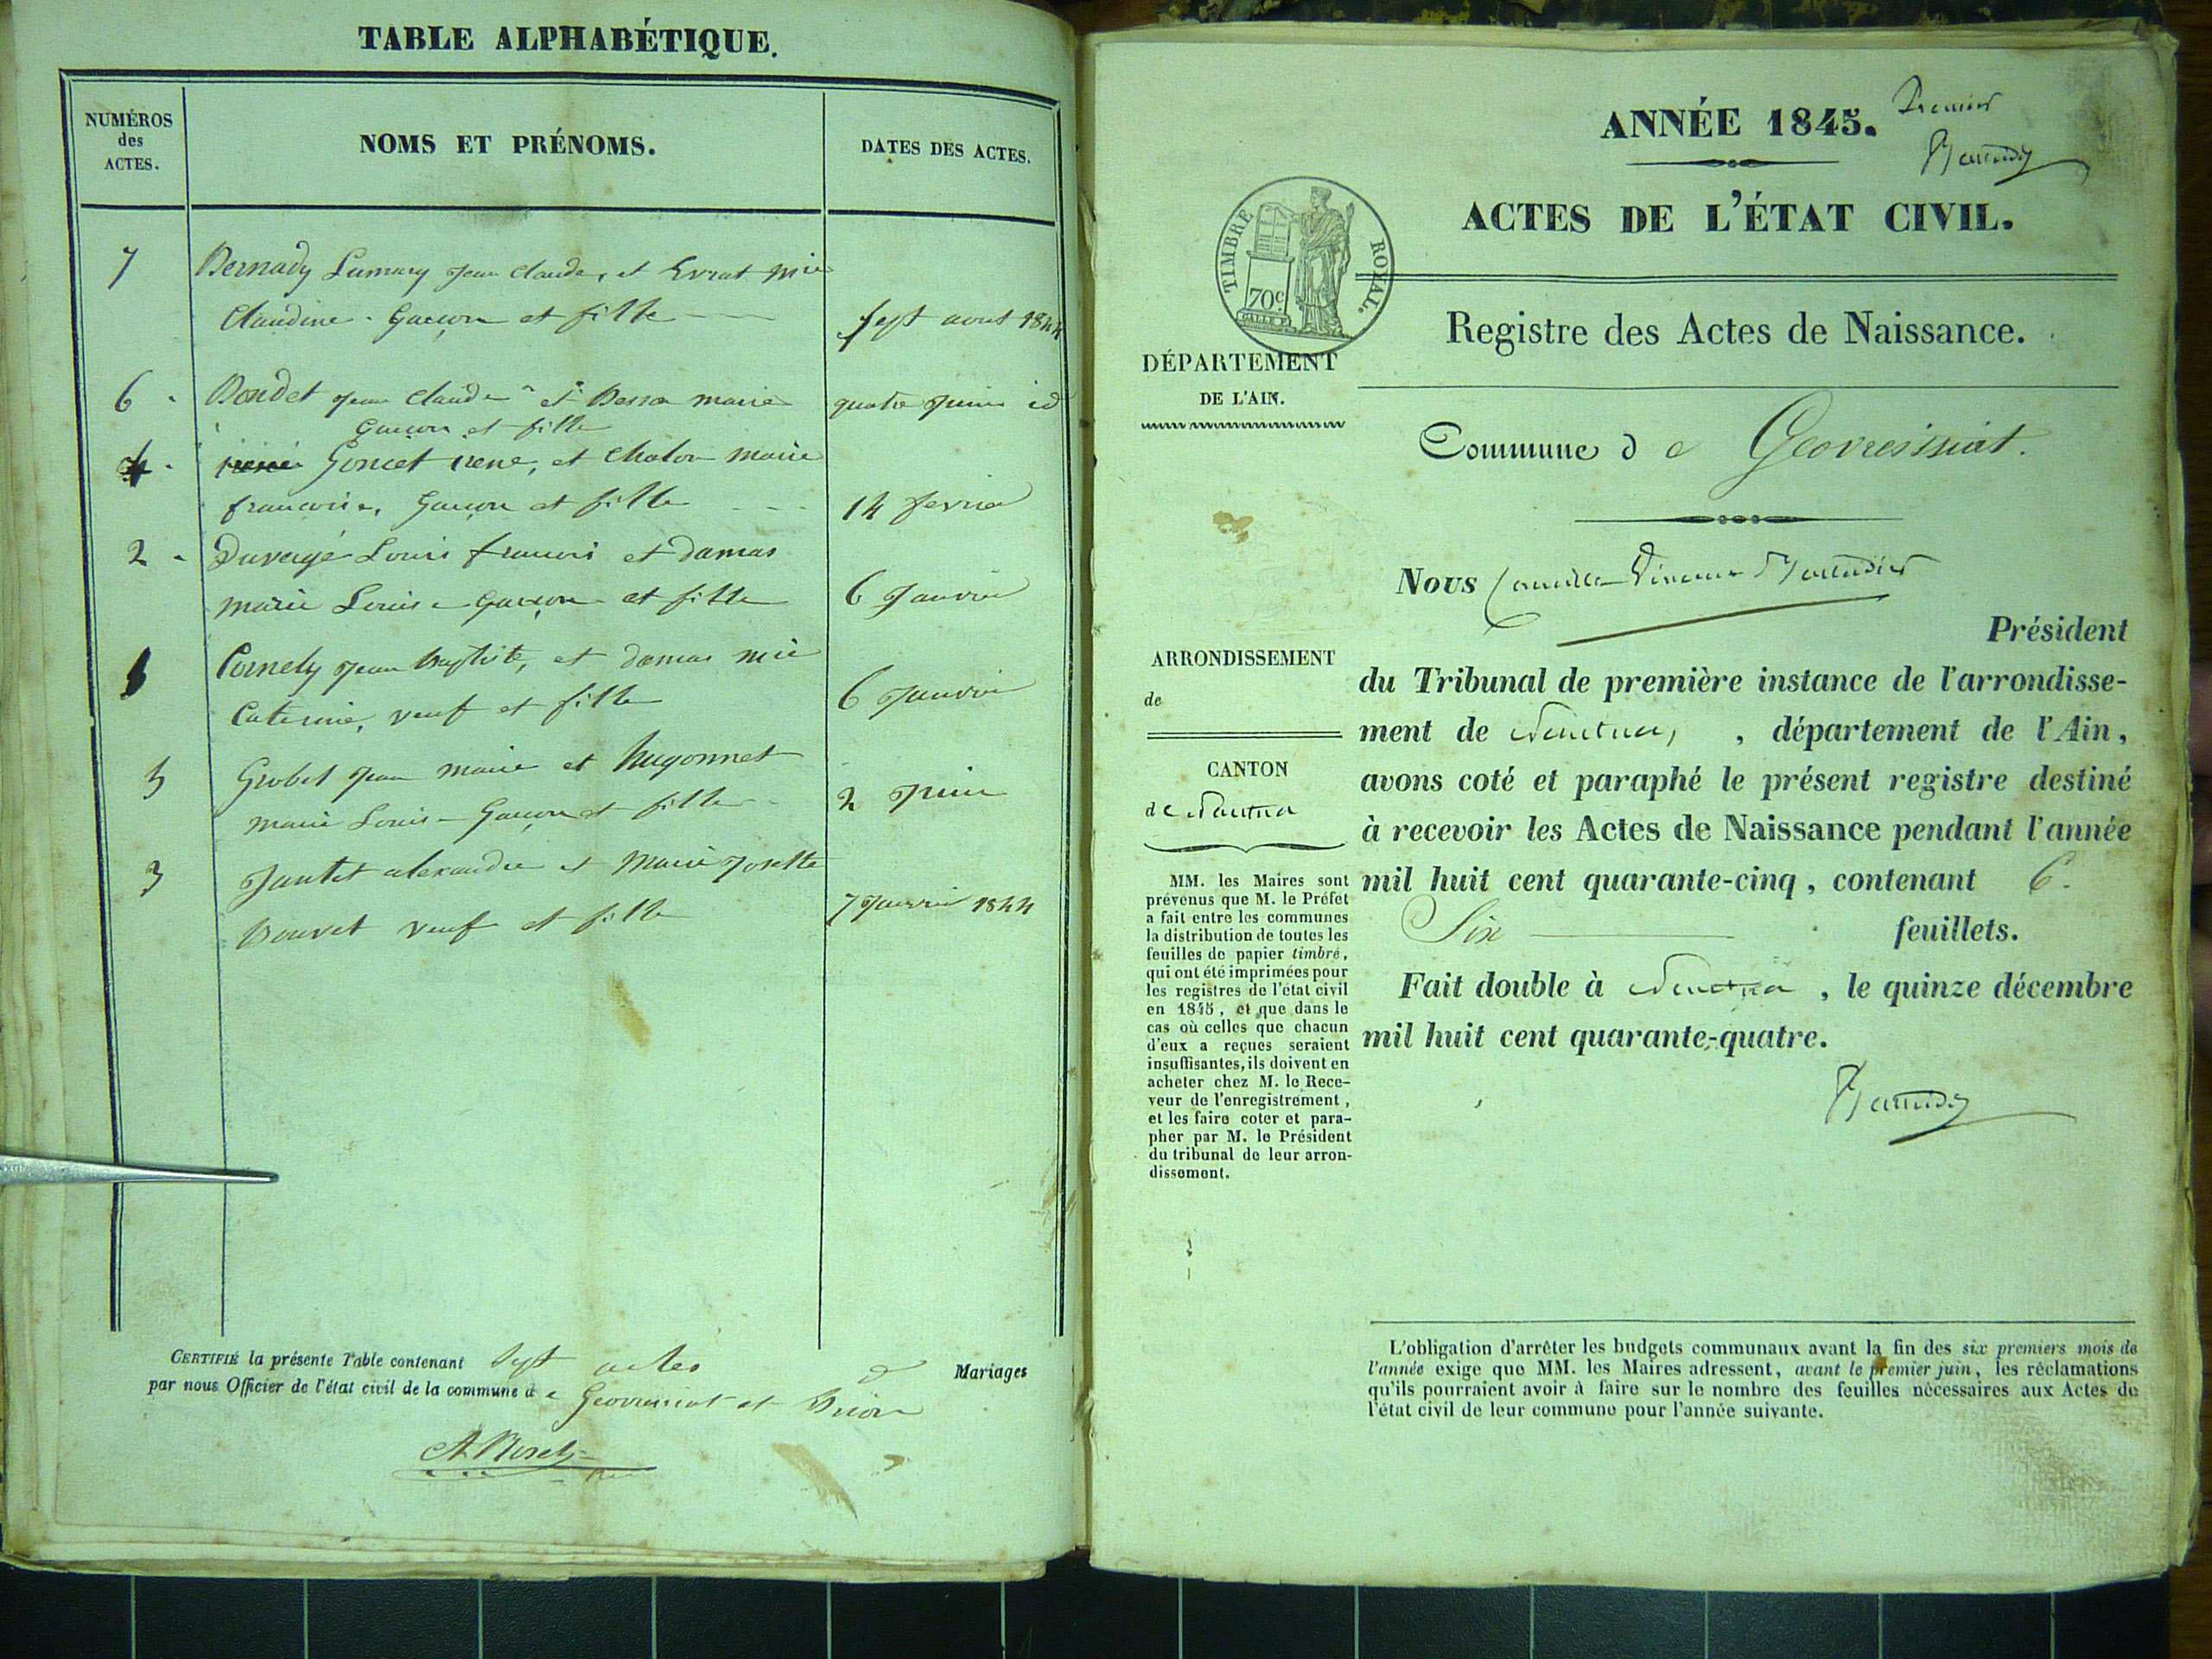 TABLE ALPHABÉTIQUE.
NUMÉROS
des
ACTES.
NOMS ET PRÉNOMS.
DATES DES ACTES.
7 Bernady Lumary Jean Claude, et Evrat mie
Claudine - Garçon et fille sept aout 1844
6 - Bondet Jean Claude et Besson marie quatre Juin id
Garçon et fille
4 - Goncet rene, et Chalon marie
francoise, Garçon et fille 14 fevrier
2 - Duvergé Louis francois et damas
marie Louise Garçon et fille 6 Janvier
1 Cornely Jean baptiste, et damas mie
Caterine, veuf et fille 6 Janvier
5 Grobet Jean marie et hugonnet
marie Louise - Garçon et fille 2 Juin
3 Jantet alexandre et Marie Josette
Bouvet veuf et fille 7 Janvier 1844
CERTIFIÉ la présente Table contenant Sept actes de Mariages
par nous Officier de l'état civil de la commune de Geovreissiat et
ANNÉE 1845. Premier
ACTES DE L'ÉTAT CIVIL.
TIMBRE ROYAL.
70c
Registre des Actes de Naissance.
DÉPARTEMENT
DE L'AIN.
Commune de Geovreissiat.
Nous
Président
du Tribunal de première instance de l'arrondisse-
ment de Nantua, , département de l'Ain,
avons coté et paraphé le présent registre destiné
à recevoir les Actes de Naissance pendant l'année
mil huit cent quarante-cinq, contenant 6.
Six feuillets.
Fait double à Nantua, le quinze décembre
mil huit cent quarante-quatre.
ARRONDISSEMENT
de
CANTON
de Nantua
MM. les Maires sont
prévenus que M. le Préfet
a fait entre les communes
la distribution de toutes les
feuilles de papier timbré,
qui ont été imprimées pour
les registres de l'état civil
en 1845, et que dans le
cas où celles que chacun
d'eux a reçues seraient
insuffisantes, ils doivent en
acheter chez M. le Rece-
veur de l'enregistrement,
et les faire coter et para-
pher par M. le Président
du tribunal de leur arron-
dissement.
L'obligation d'arrêter les budgets communaux avant la fin des six premiers mois de
l'année exige que MM. les Maires adressent, avant le premier juin, les réclamations
qu'ils pourraient avoir à faire sur le nombre des feuilles nécessaires aux Actes de
l'état civil de leur commune pour l'année suivante.